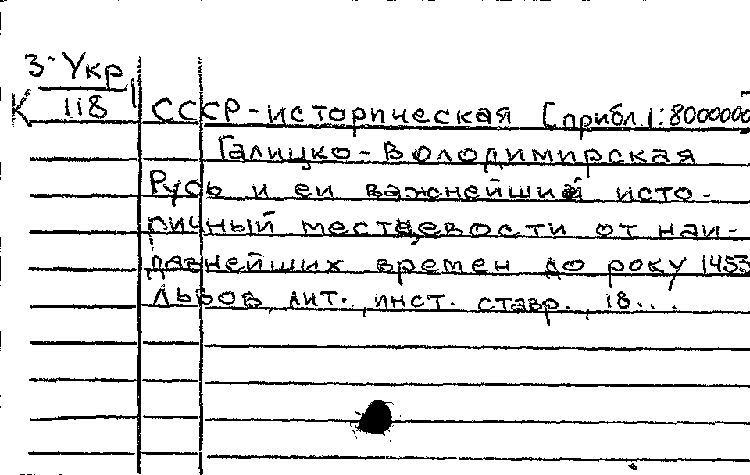 3-Укр
К 118
СССР-историческая [прибл. 1:8000000
Галицко-Володимирская
Русь и еи важнейшии исто-
ричный местцевости от наи-
давнейших времен до року 1453
Львов, лит. инст. ставр., 18...